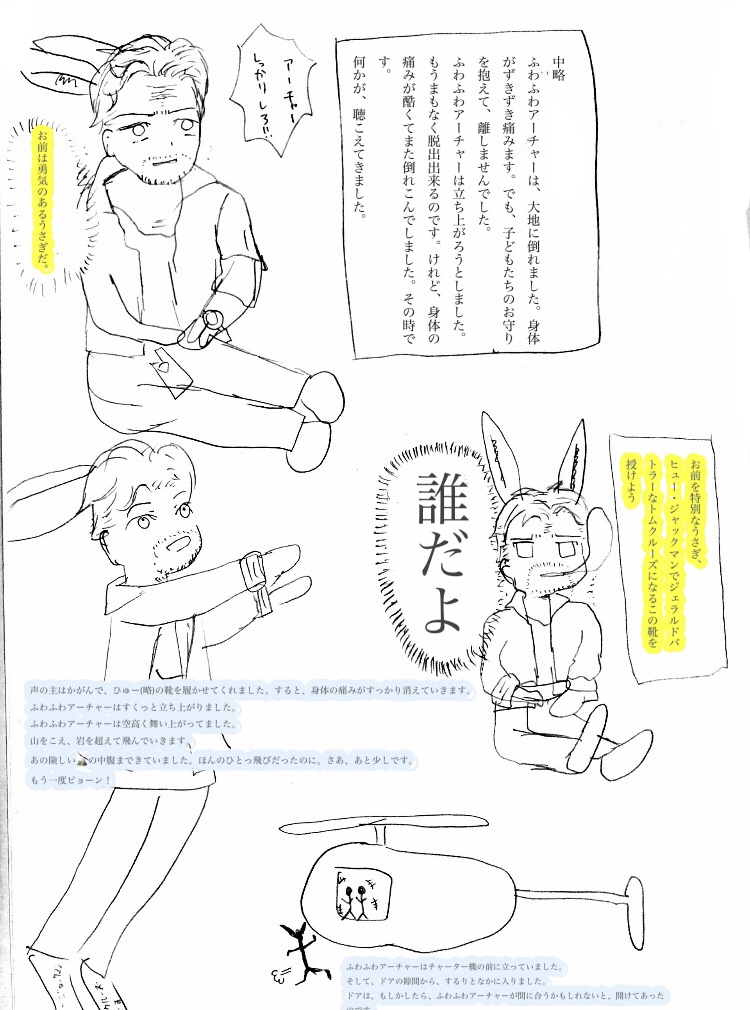 中略
ふわふわアーチャーは、大地に倒れました。身体
がずきずき痛みます。でも、子どもたちのお守り
を抱えて、離しませんでした。
ふわふわアーチャーは立ち上がろうとしました。
もうまもなく脱出出来るのです。けれど、身体の
痛みが酷くてまた倒れこんでしました。その時で
す。
何かが、聴こえてきました。
アーチャー
しっかりしろ!!
お前は勇気のあるうさぎだ。
お前を特別なうさぎ、
ヒュー・ジャックマンでジェラルドバ
トラーなトムクルーズになるこの靴を
授けよう
誰だよ
声の主はかがんで、ひゅー(略)の靴を履かせてくれました。すると、身体の痛みがすっかり消えていきます。
ふわふわアーチャーはすくっと立ち上がりました。
ふわふわアーチャーは空高く舞い上がってました。
山をこえ、岩を超えて飛んでいきます。
あの険しい⛰の中腹まできていました。ほんのひとっ飛びだったのに。さあ、あと少しです。
もう一度ピョーン！
ふわふわアーチャーはチャーター機の前に立っていました。
そして、ドアの隙間から、するりとなかに入りました。
ドアは、もしかしたら、ふわふわアーチャーが間に合うかもしれないと、開けてあった
のです。